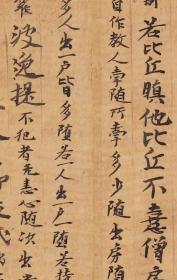 若比丘瞋他比丘不憙僧房
自作教人牽随所牽多少随出房随
多人出一戶皆多随若一人出一戶随若持
波逸提 不犯者无恚心随次出